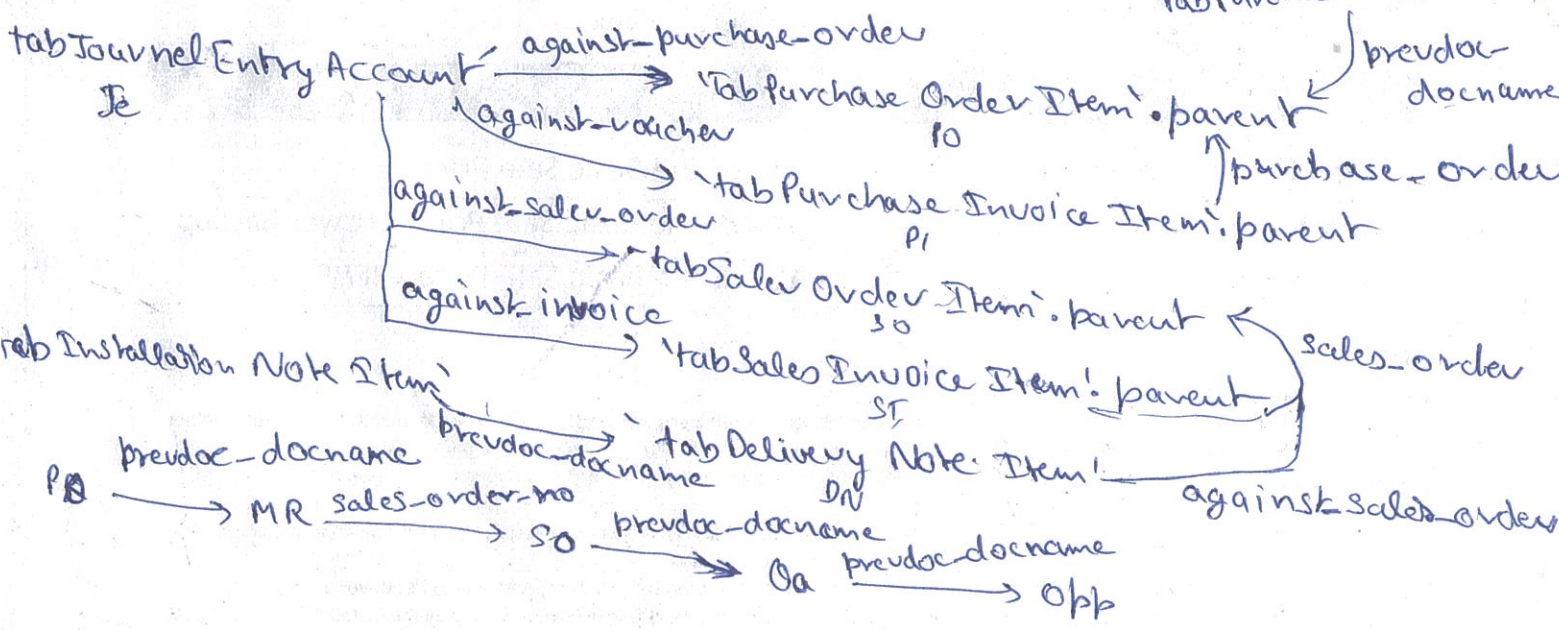 tabJournelEntry Account
Je
against-purchase-order
'Tab Purchase Order Item`.parent
PO
prevdoc-
docname
against-voucher
`tabPurchase Invoice Item`.parent
PI
purchase-order
against-sales-order
`tabSales Order Item`.parent
SO
against-invoice
`tabSales Invoice Item`.parent
SI
sales-order
tab Installation Note Item`
prevdoc-docname
`tabDelivery Note Item`
DN
against-sales-order
prevdoc-docname
MR
sales-order-no
SO
prevdoc-docname
Qa
prevdoc-docname
Opp